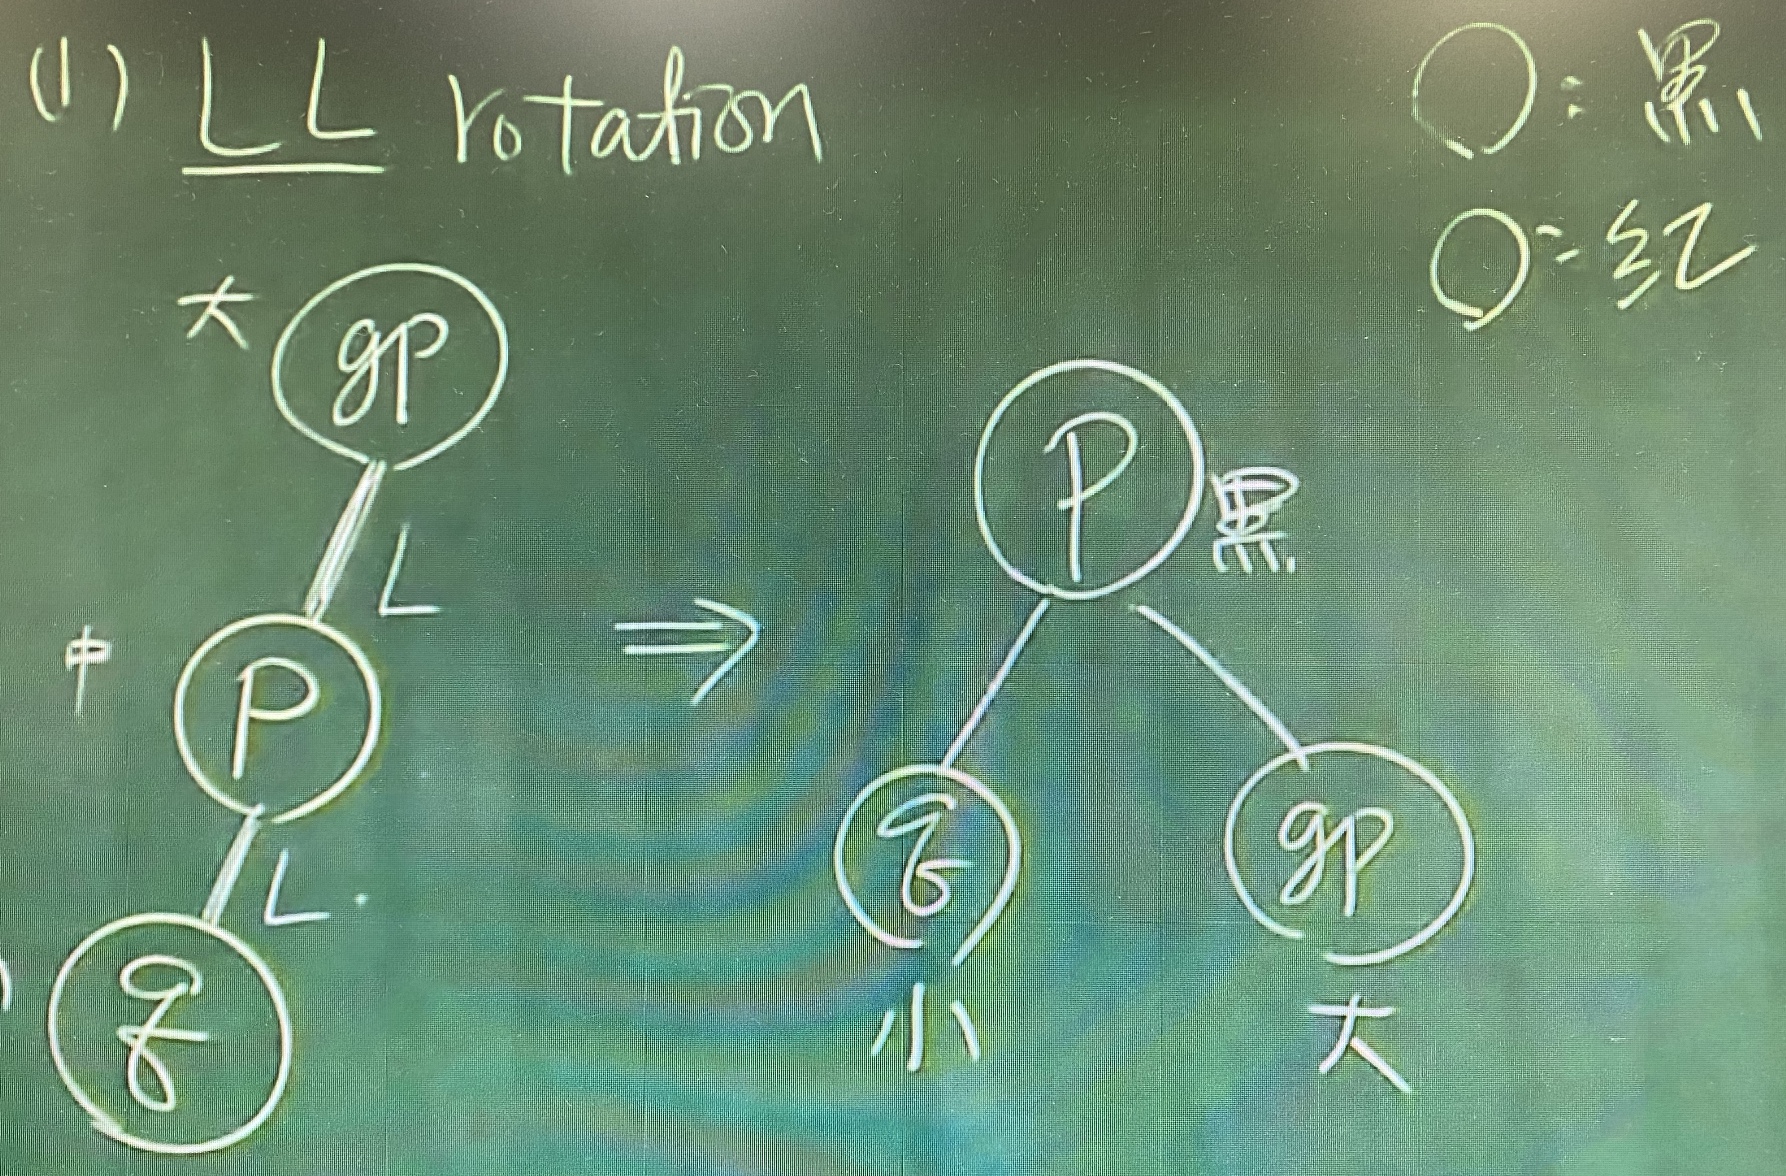 (1) LL rotation
○: 黑
○: 红
大
gp
L
中
P
L
q
⇒
P
黑
q
gp
小
大